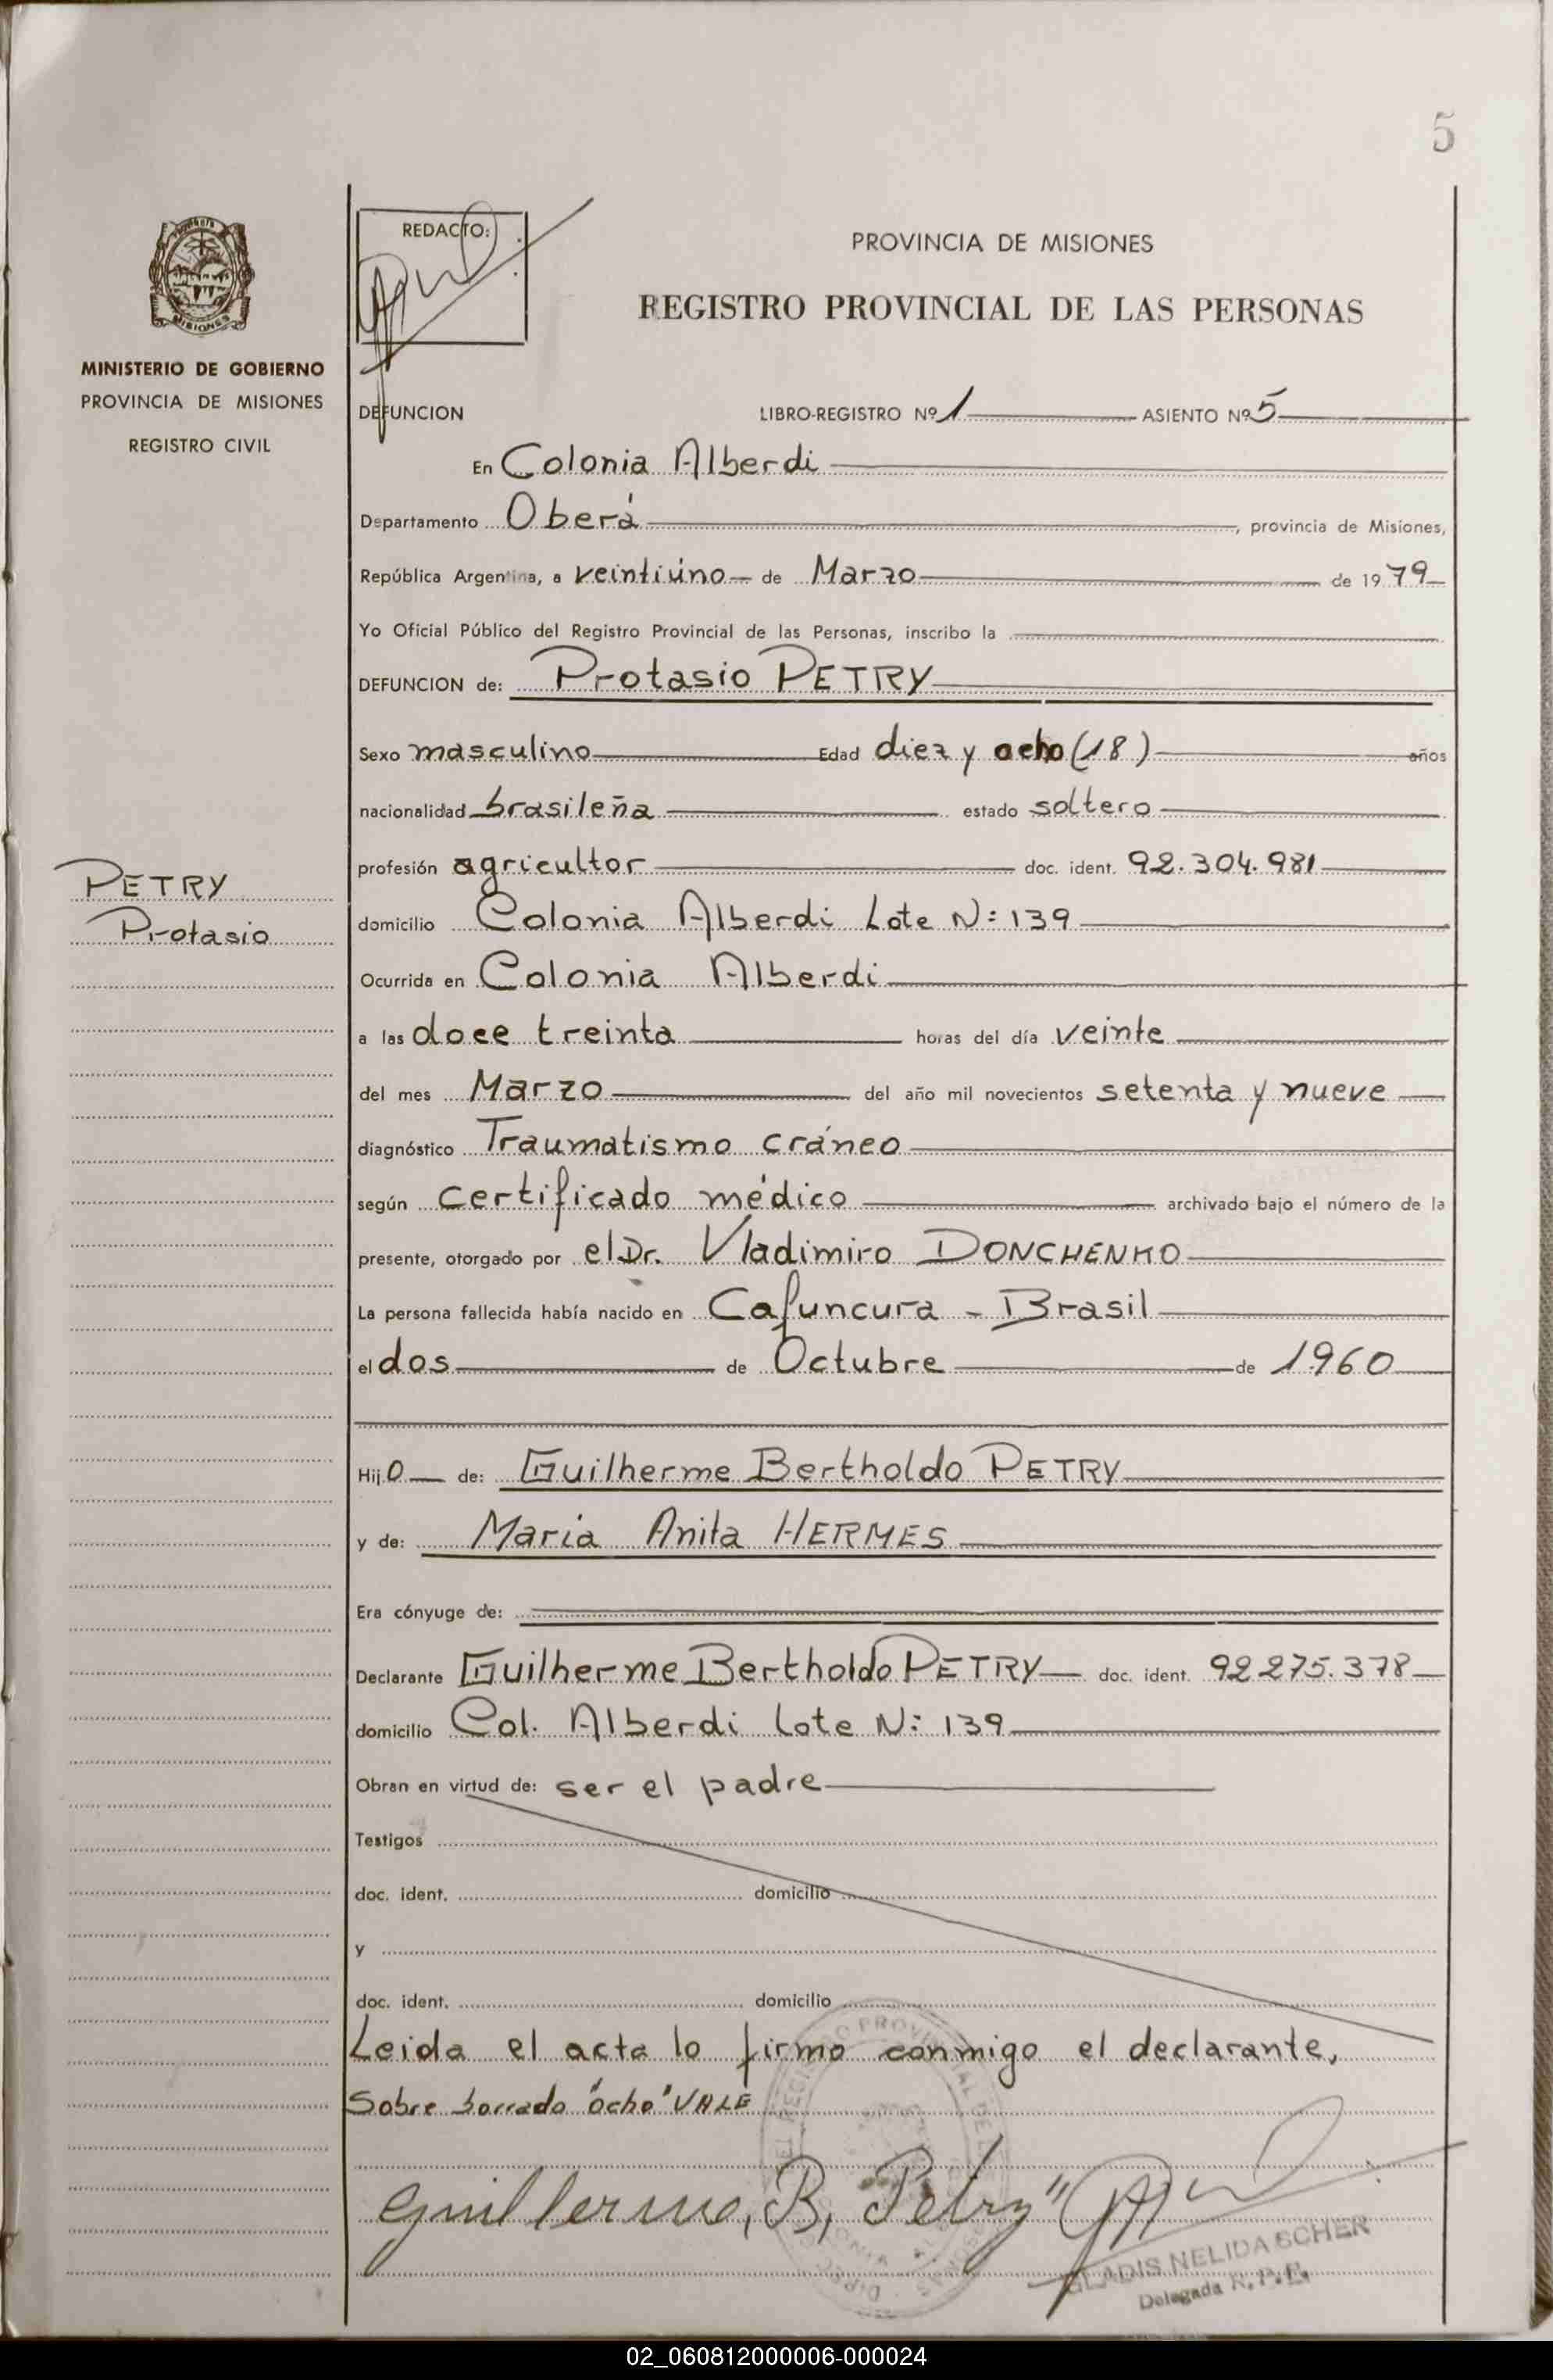 5
MINISTERIO DE GOBIERNO
PROVINCIA DE MISIONES
REGISTRO CIVIL
REDACTO:
PROVINCIA DE MISIONES
REGISTRO PROVINCIAL DE LAS PERSONAS
DEFUNCION LIBRO-REGISTRO Nº 1 ASIENTO Nº 5
En Colonia Alberdi
Departamento Oberá, provincia de Misiones,
República Argentina, a veintiúno de Marzo de 1979
Yo Oficial Público del Registro Provincial de las Personas, inscribo la
DEFUNCION de: Protasio PETRY
Sexo masculino Edad diez y ocho (18) años
nacionalidad brasileña estado soltero
PETRY
Protasio
profesión agricultor doc. ident. 92.304.981
domicilio Colonia Alberdi Lote N: 139
Ocurrida en Colonia Alberdi
a las doce treinta horas del día veinte
del mes Marzo del año mil novecientos setenta y nueve
diagnóstico Traumatismo cráneo
según certificado médico archivado bajo el número de la
presente, otorgado por el Dr. Vladimiro DONCHENKO
La persona fallecida había nacido en Cafuncura - Brasil
el dos de Octubre de 1960
Hijo de: Guilherme Bertholdo PETRY
y de: Maria Anita HERMES
Era cónyuge de:
Declarante Guilherme Bertholdo PETRY doc. ident. 92275.378
domicilio Col. Alberdi Lote N: 139
Obran en virtud de: ser el padre
Testigos
doc. ident. domicilio
y
doc. ident. domicilio
Leida el acta lo firmo conmigo el declarante,
Sobre borrado "ocho" VALE
Guillermo, B, Petry
GLADIS NELIDA SCHER
Delegada R.P.P.
02_060812000006-000024